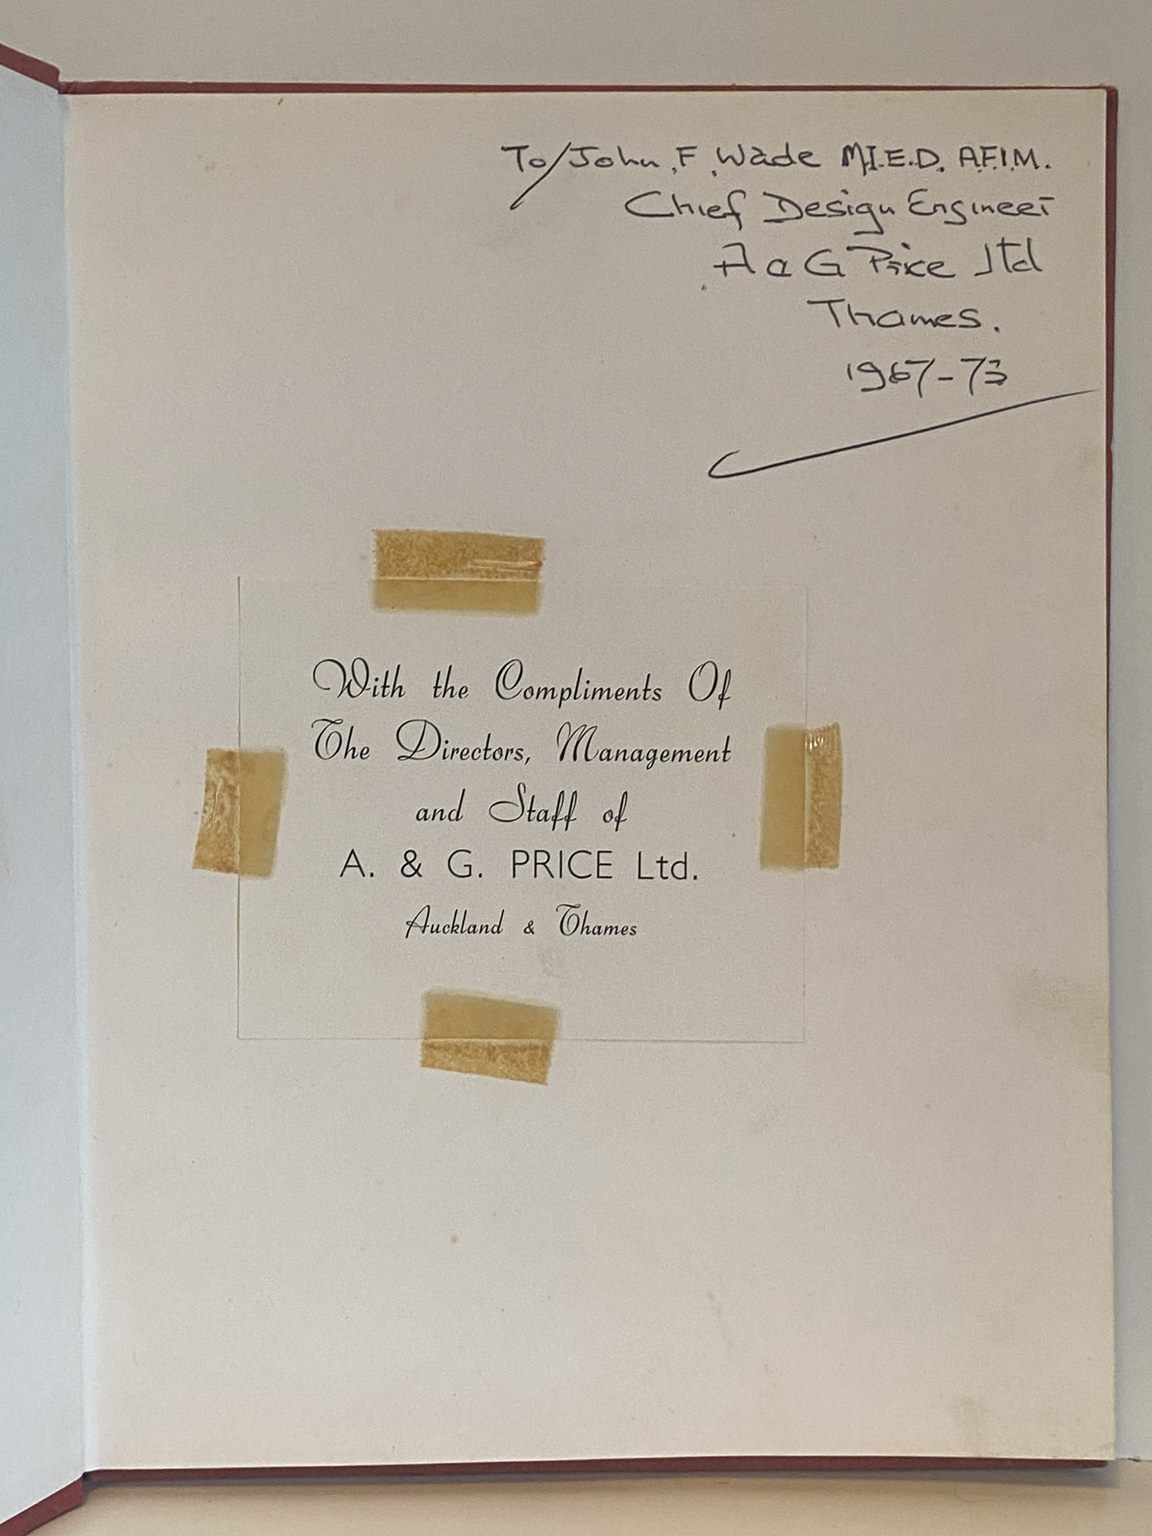 To/John F. Wade M.I.E.D. A.F.I.M.
Chief Design Engineer
A & G Price Ltd
Thames.
1967-73
With the Compliments Of
The Directors, Management
and Staff of
A. & G. PRICE Ltd.
Auckland & Thames